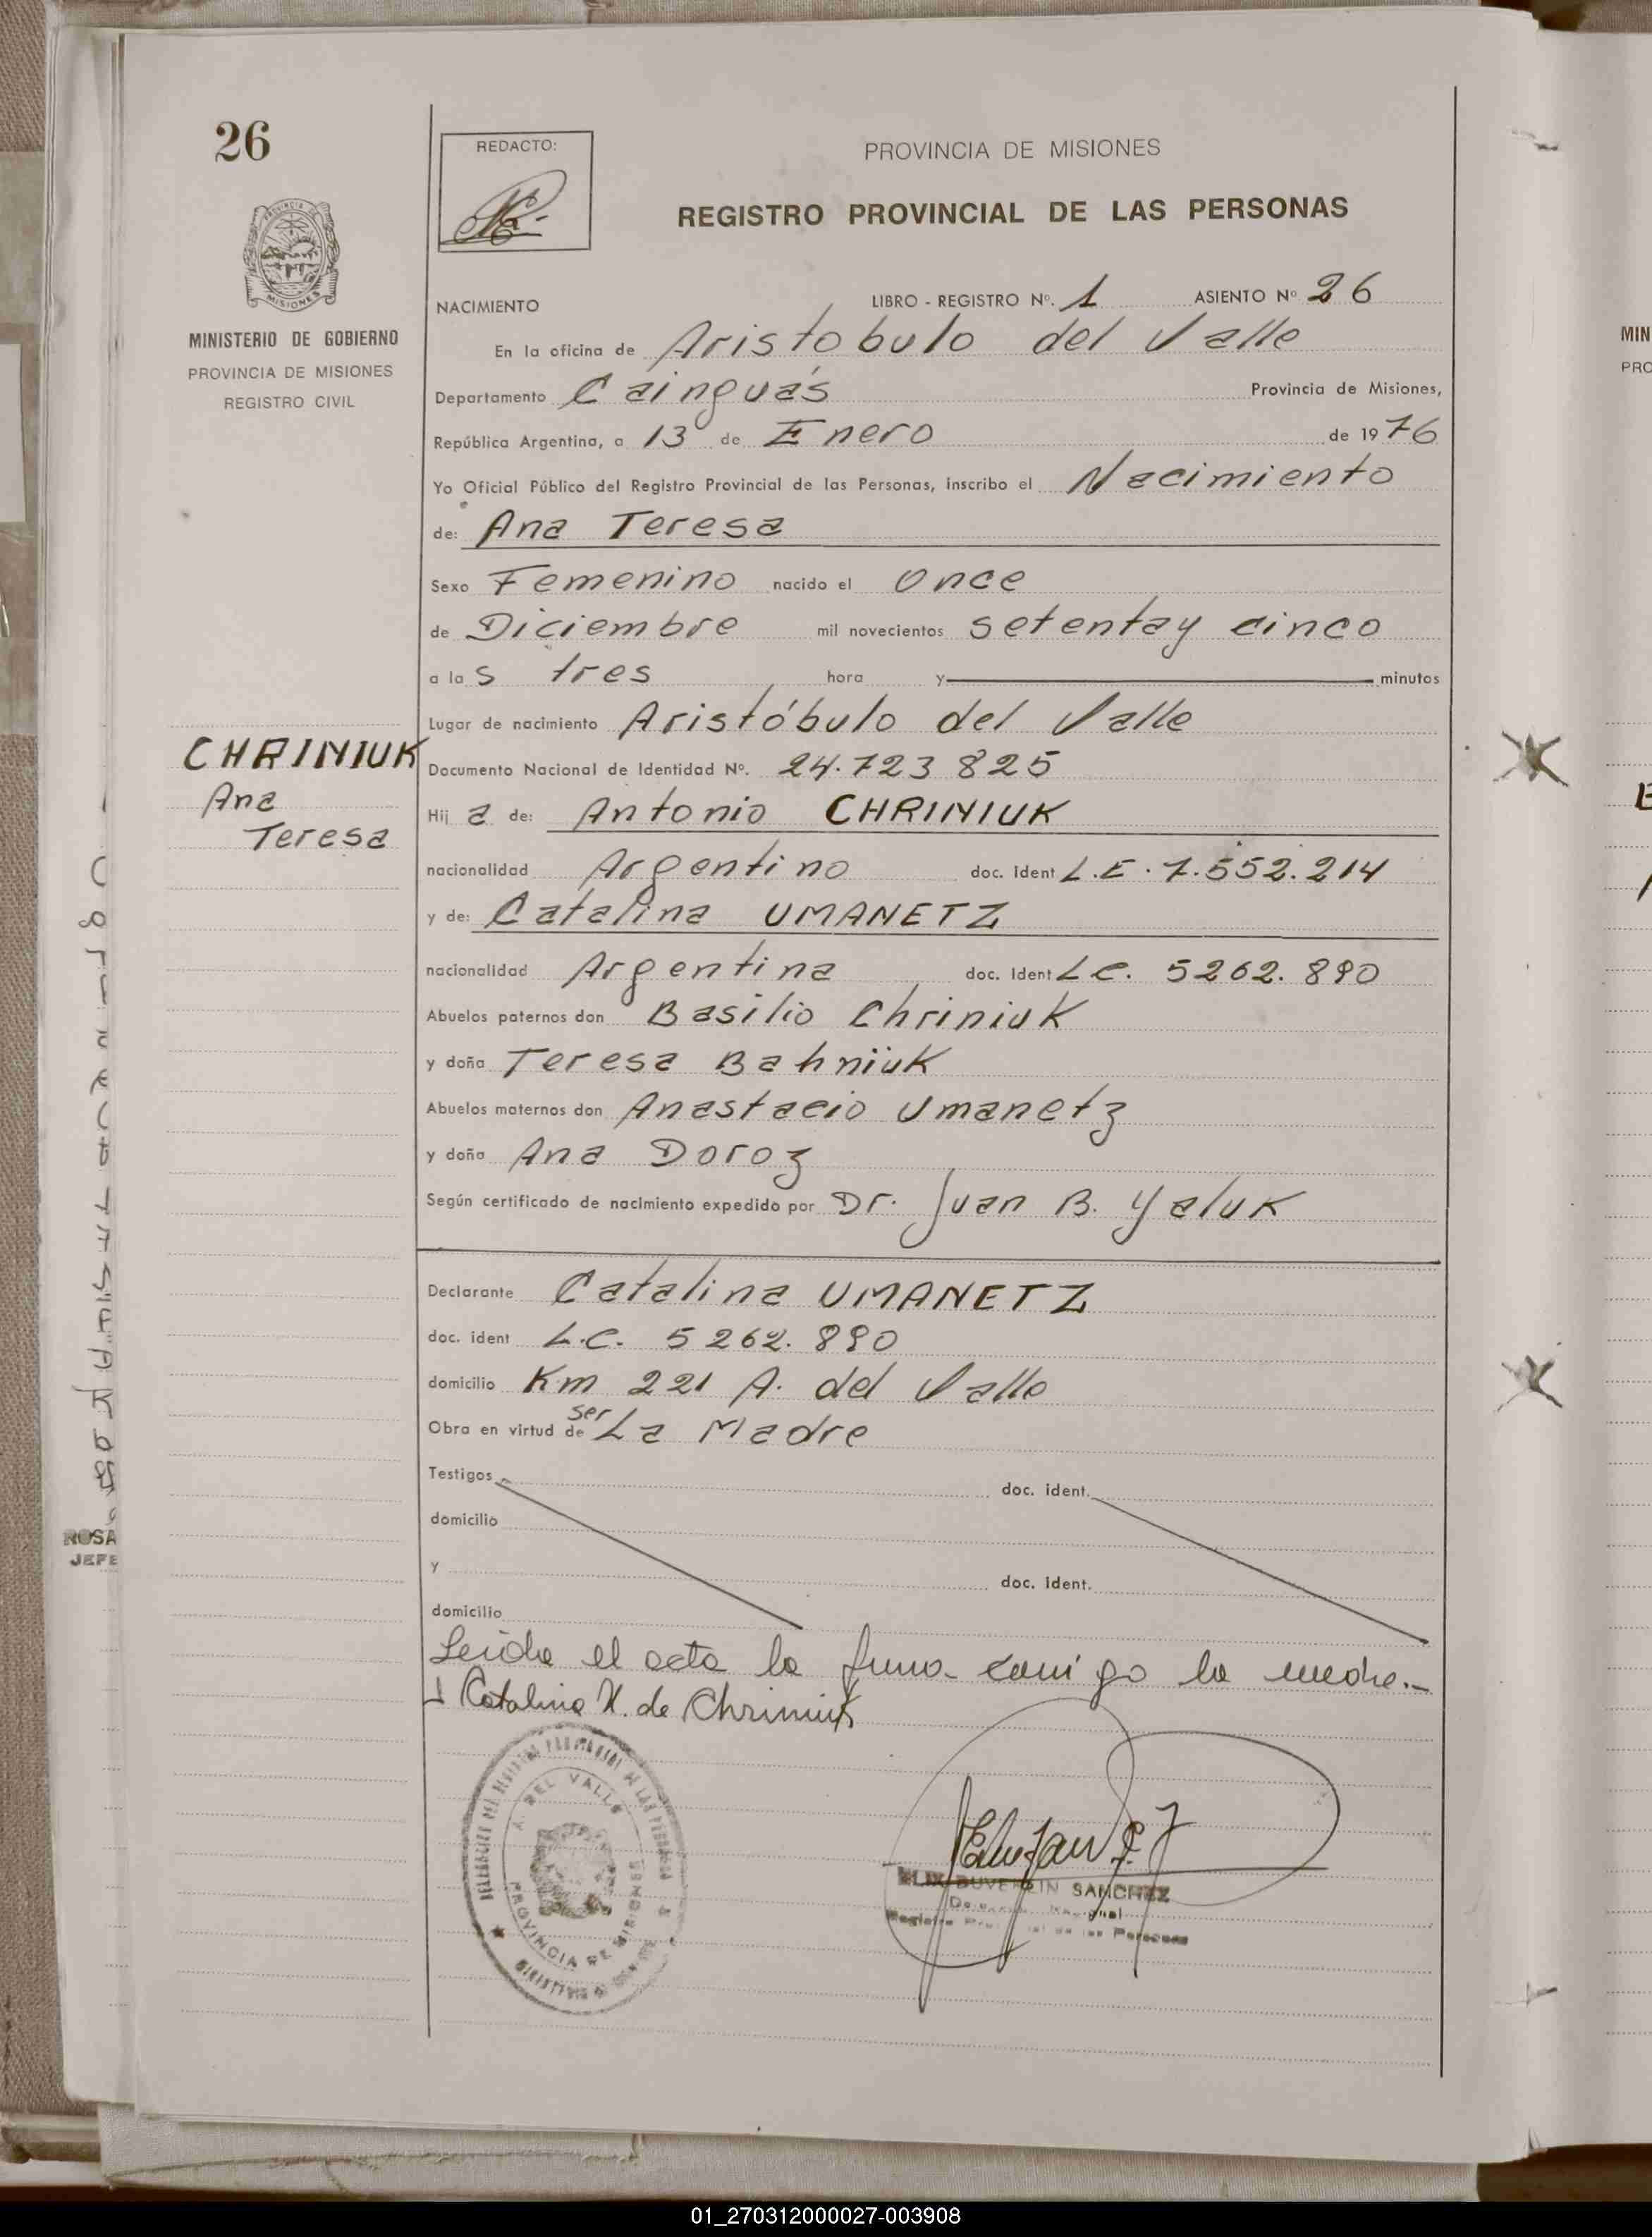 26
REDACTO:
PROVINCIA DE MISIONES
REGISTRO PROVINCIAL DE LAS PERSONAS
MISIONES
MINISTERIO DE GOBIERNO
PROVINCIA DE MISIONES
REGISTRO CIVIL
NACIMIENTO LIBRO - REGISTRO Nº. 1 ASIENTO Nº 26
En la oficina de Aristobulo del Valle
Departamento Cainguás Provincia de Misiones,
República Argentina, a 13 de Enero de 1976
Yo Oficial Público del Registro Provincial de las Personas, inscribo el Nacimiento
de: Ana Teresa
Sexo Femenino nacido el once
de Diciembre mil novecientos setentay cinco
a las tres hora y minutos
Lugar de nacimiento Aristóbulo del Valle
CHRINIUK
Ana
Teresa
Documento Nacional de Identidad Nº. 24.723825
Hija de: Antonio CHRINIUK
nacionalidad Argentino doc. ident L.E. 7.552.214
y de: Catalina UMANETZ
nacionalidad Argentina doc. Ident L.C. 5262.890
Abuelos paternos don Basilio Chriniuk
y doña Teresa Bahniuk
Abuelos maternos don Anastacio Umanetz
y doña Ana Doroz
Según certificado de nacimiento expedido por Dr. Juan B. Yaluk
Declarante Catalina UMANETZ
doc. ident L.C. 5262.890
domicilio Km 221 A. del Valle
Obra en virtud de ser La Madre
Testigos doc. ident.
domicilio
y doc. ident.
domicilio
Leida el acta la firma conmigo la madre.-
Catalina U. de Chriniuk
A. DEL VALLE
PROVINCIA DE MISIONES
SANCHEZ
ROSA
JEFE
MIN
PRO
01_270312000027-003908